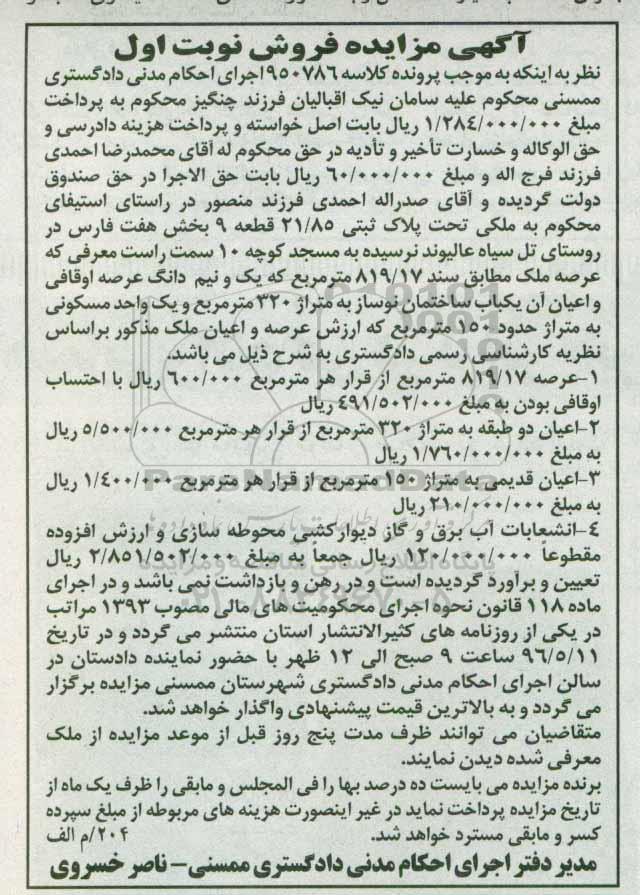 آگهی مزایده فروش نوبت اول
نظر به اینکه به موجب پرونده کلاسه ۹۵۰۷۸۶ اجرای احکام مدنی دادگستری
ممسنی محکوم علیه سامان نیک اقبالیان فرزند چنگیز محکوم به پرداخت
مبلغ ۱/۲۸۴/۰۰۰/۰۰۰ ریال بابت اصل خواسته و پرداخت هزینه دادرسی و
حق الوکاله و خسارت تأخیر و تأدیه در حق محکوم له آقای محمدرضا احمدی
فرزند فرج اله و مبلغ ۶۰/۰۰۰/۰۰۰ ریال بابت حق الاجرا در حق صندوق
دولت گردیده و آقای صدراله احمدی فرزند منصور در راستای استیفای
محکوم به ملکی تحت پلاک ثبتی ۲۱/۸۵ قطعه ۹ بخش هفت فارس در
روستای تل سیاه عالیوند نرسیده به مسجد کوچه ۱۰ سمت راست معرفی که
عرصه ملک مطابق سند ۸۱۹/۱۷ مترمربع که یک و نیم دانگ عرصه اوقافی
و اعیان آن یکباب ساختمان نوساز به متراژ ۳۲۰ مترمربع و یک واحد مسکونی
به متراژ حدود ۱۵۰ مترمربع که ارزش عرصه و اعیان ملک مذکور براساس
نظریه کارشناسی رسمی دادگستری به شرح ذیل می باشد.
۱-عرصه ۸۱۹/۱۷ مترمربع از قرار هر مترمربع ۶۰۰/۰۰۰ ریال با احتساب
اوقافی بودن به مبلغ ۴۹۱/۵۰۲/۰۰۰ ریال
۲-اعیان دو طبقه به متراژ ۳۲۰ مترمربع از قرار هر مترمربع ۵/۵۰۰/۰۰۰ ریال
به مبلغ ۱/۷۶۰/۰۰۰/۰۰۰ ریال
۳-اعیان قدیمی به متراژ ۱۵۰ مترمربع از قرار هر مترمربع ۱/۴۰۰/۰۰۰ ریال
به مبلغ ۲۱۰/۰۰۰/۰۰۰ ریال
ParsNamadData
۴-انشعابات آب برق و گاز دیوارکشی محوطه سازی و ارزش افزوده
مقطوعاً ۱۲۰/۰۰۰/۰۰۰ ریال جمعاً به مبلغ ۲/۸۵۱/۵۰۲/۰۰۰ ریال
پایگاه اطلاع رسانی مناقصه و مزایده
تعیین و برآورد گردیده است و در رهن و بازداشت نمی باشد و در اجرای
ماده ۱۱۸ قانون نحوه اجرای محکومیت های مالی مصوب ۱۳۹۳ مراتب
در یکی از روزنامه های کثیرالانتشار استان منتشر می گردد و در تاریخ
۹۶/۵/۱۱ ساعت ۹ صبح الی ۱۲ ظهر با حضور نماینده دادستان در
سالن اجرای احکام مدنی دادگستری شهرستان ممسنی مزایده برگزار
می گردد و به بالاترین قیمت پیشنهادی واگذار خواهد شد.
متقاضیان می توانند ظرف مدت پنج روز قبل از موعد مزایده از ملک
معرفی شده دیدن نمایند.
برنده مزایده می بایست ده درصد بها را فی المجلس و مابقی را ظرف یک ماه از
تاریخ مزایده پرداخت نماید در غیر اینصورت هزینه های مربوطه از مبلغ سپرده
کسر و مابقی مسترد خواهد شد. ۲۰۴/م الف
مدیر دفتر اجرای احکام مدنی دادگستری ممسنی - ناصر خسروی